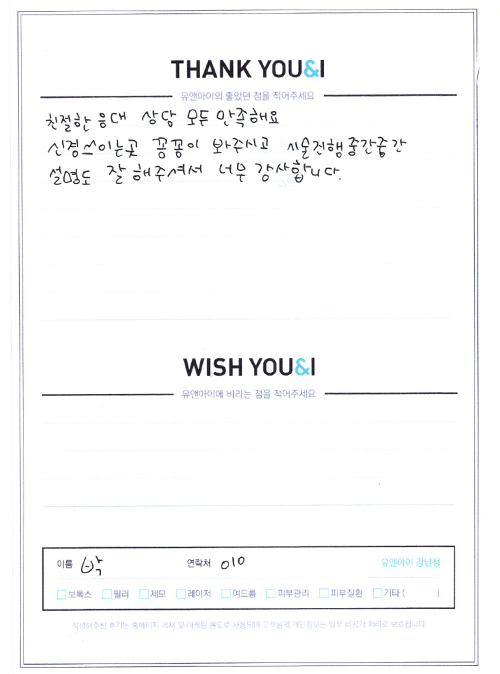 THANK YOU&I
유앤아이의 좋았던 점을 적어주세요
친절한 응대 상담 모두 만족해요
신경쓰이는곳 꼼꼼이 봐주시고 시술진행중간중간
설명도 잘 해주셔서 너무 감사합니다.
WISH YOU&I
유앤아이에 바라는 점을 적어주세요
이름 박 연락처 010 유앤아이 강남점
보톡스 필러 제모 레이저 여드름 피부관리 피부질환 기타 ( )
작성해주신 후기는 홈페이지 게재 및 마케팅 용도로 사용되며 고객님의 개인정보는 일부 비공개 처리로 보호됩니다.